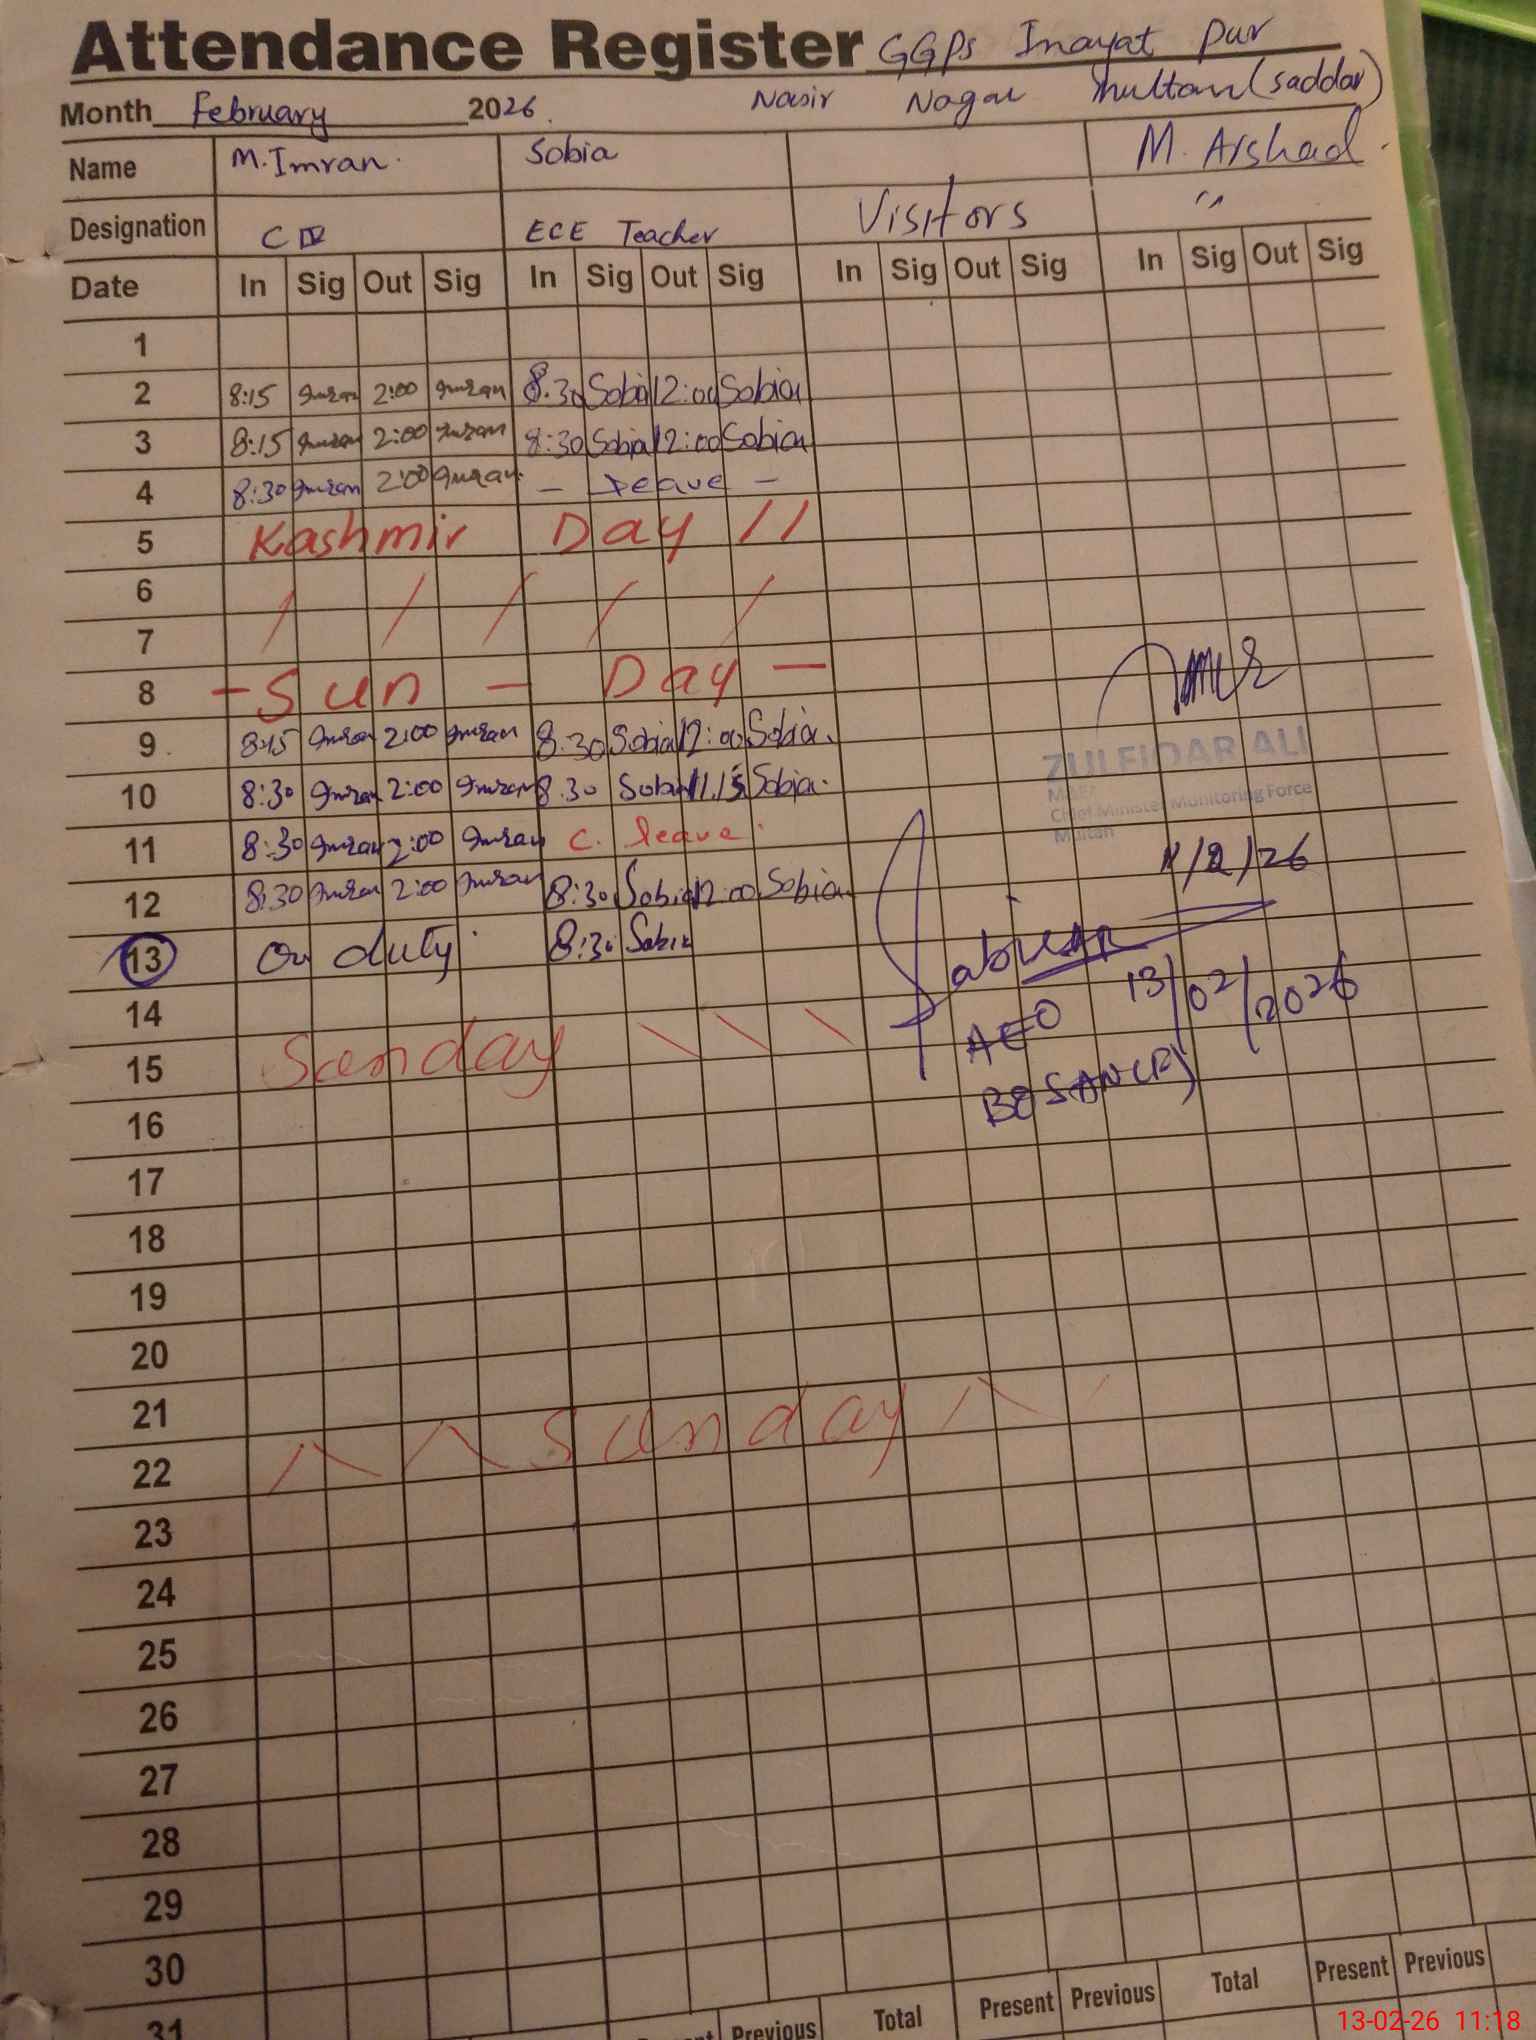 Attendance Register GGPS Inayat Pur
Nasir Nagar Multan (saddar)
Month February 2026
Name M. Imran. Sobia M. Arshad
Designation C IV ECE Teacher Visitors "
Date In Sig Out Sig In Sig Out Sig In Sig Out Sig In Sig Out Sig
1
2 8:15 Imran 2:00 Imran 8:30 Sobia 12:00 Sobia
3 8:15 Imran 2:00 Imran 8:30 Sobia 12:00 Sobia
4 8:30 Imran 2:00 Imran - Leave -
5 Kashmir Day //
6 / / / / /
7
8 - Sun - Day -
9 8:15 Imran 2:00 Imran 8:30 Sobia 12:00 Sobia.
10 8:30 Imran 2:00 Imran 8:30 Sobia 11:15 Sobia.
ZULFIQAR ALI
MEA
Chief Minister Monitoring Force
Multan
11 8:30 Imran 2:00 Imran C. leave.
11/2/26
12 8:30 Imran 2:00 Imran 8:30 Sobia 12:00 Sobia
13 On duty 8:30 Sobia
13/02/2026
AEO
BOSAN(R)
14
15 Sunday \ \ \
16
17
18
19
20
21
22 Sunday
23
24
25
26
27
28
29
30
31
Present Previous Total Present Previous Total Present Previous
13-02-26 11:18